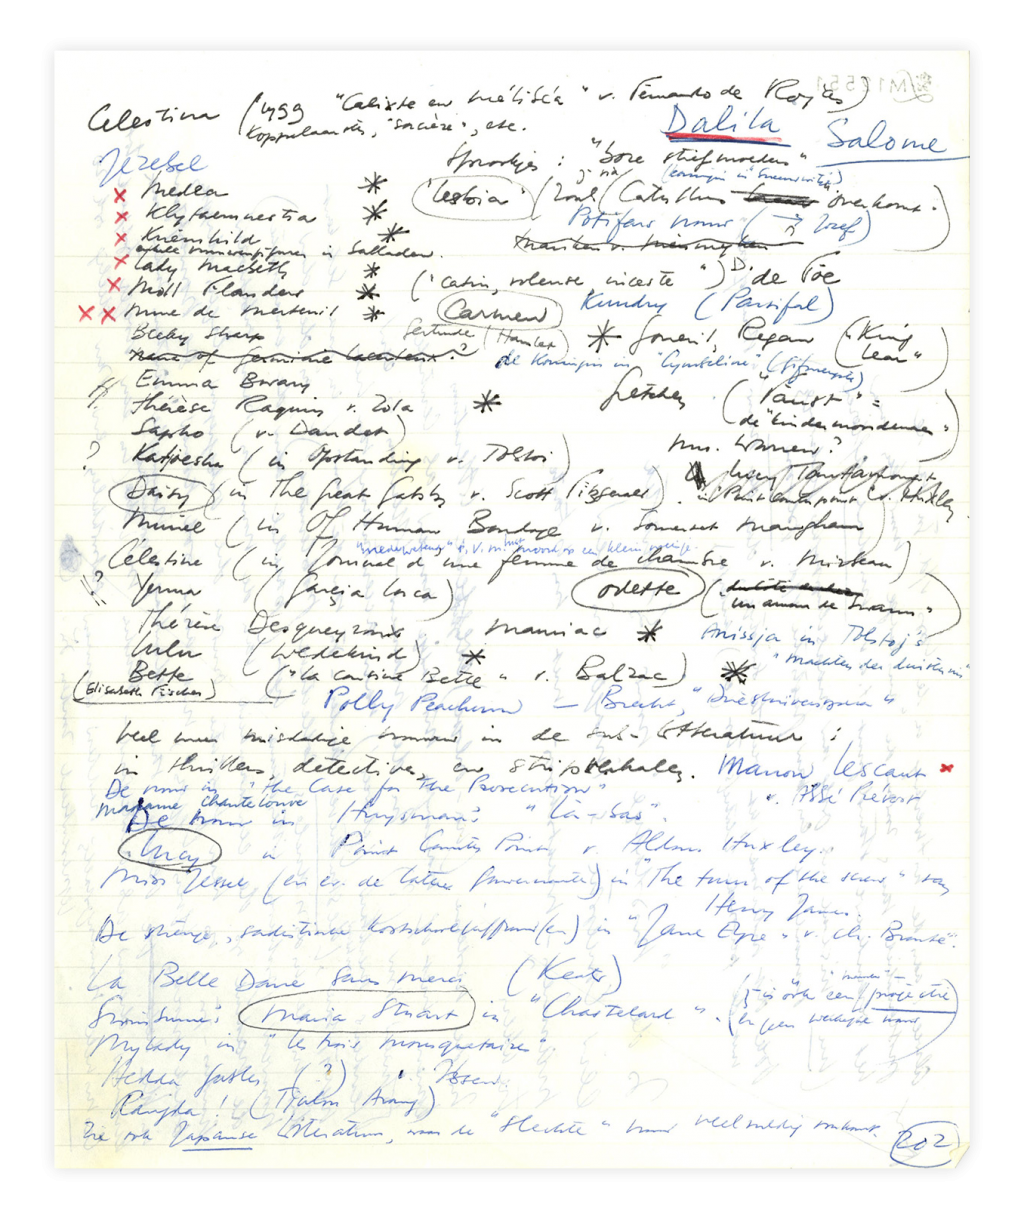 Celestina (1499 "Calixte en Mélibéa" v. Fernando de Rojas)
Koppelaarster, "sorcière", etc.
Dalila Salome
Jezebel Sprookjes: "boze stiefmoeders"
(koningin in Sneeuwwitje)
× Medea * "Lesbia" (zoals Catullus overkomt.)
× Klytaemnestra * Potifars vrouw (→ Jozef)
× Kriemhild *
in balladen.
× Lady Macbeth *
× Moll Flanders * ("catin, voleuse, inceste") D. de Foe
×× Mme de Merteuil * Carmen Kundry (Parsifal)
Becky Sharp Gertrude (Hamlet) * Goneril, Regan ("King Lear")
name of Germinie Lacerteux?
de Koningin in "Cymbeline"
Emma Bovary
Thérèse Raquin v. Zola * Gretchen ("Faust" =
de "kindermoordenares")
Sapho (v. Daudet) Mrs. Warren?
? Katjoesha (in Opstanding v. Tolstoi)
Lucy Tantamount
in Point Counterpoint v. Huxley
Daisy (in The Great Gatsby v. Scott Fitzgerald)
(in Of Human Bondage v. Somerset Maugham)
Célestine (in Journal d'une femme de chambre v. Mirbeau)
? Yerma (Garcia Lorca) Odette (
"un amour de Swann")
Thérèse Desqueyroux Mauriac * Anissja in Tolstoj's
"Machten der duisternis"
Lulu (Wedekind) *
Bette ("La cousine Bette" v. Balzac) *
(Elisabeth Fischer)
Polly Peachum — Brecht, "Driestuiversopera"
Veel meer misdadige vrouwen in de sub-litteratuur:
in thrillers, detectives, en stripverhalen. Manon Lescaut ×
v. Abbé Prévost
De vrouw in "The Case for the Prosecution"
Madame Chantelouve
De vrouw in Huysmans' "Là-bas".
Lucy in Point Counter Point v. Aldous Huxley.
Miss Jessel (en ev. de latere gouvernante) in "The turn of the screw" van
Henry James.
De strenge, sadistische kostschooljuffrouw(en) in "Jane Eyre" v. Ch. Brontë.
La Belle Dame sans merci (Keats)
Swinburne's Maria Stuart in "Chastelard".
is ook een projectie
en geen werkelijke vrouw
Mylady in "Les trois mousquetaires"
Hedda Gabler (?) Ibsen
Rangda! (Tjalon Arang)
Zie ook Japanse Literatuur, waar de "slechte" vrouw veelvuldig voorkomt.
202